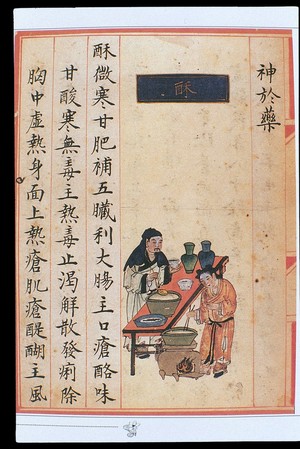 神於藥
酥
酥微寒甘肥補五臟利大腸主口瘡酪味
甘酸寒無毒主熱毒止渴解散發痢除
胸中虛熱身面上熱瘡肌瘡醍醐主風